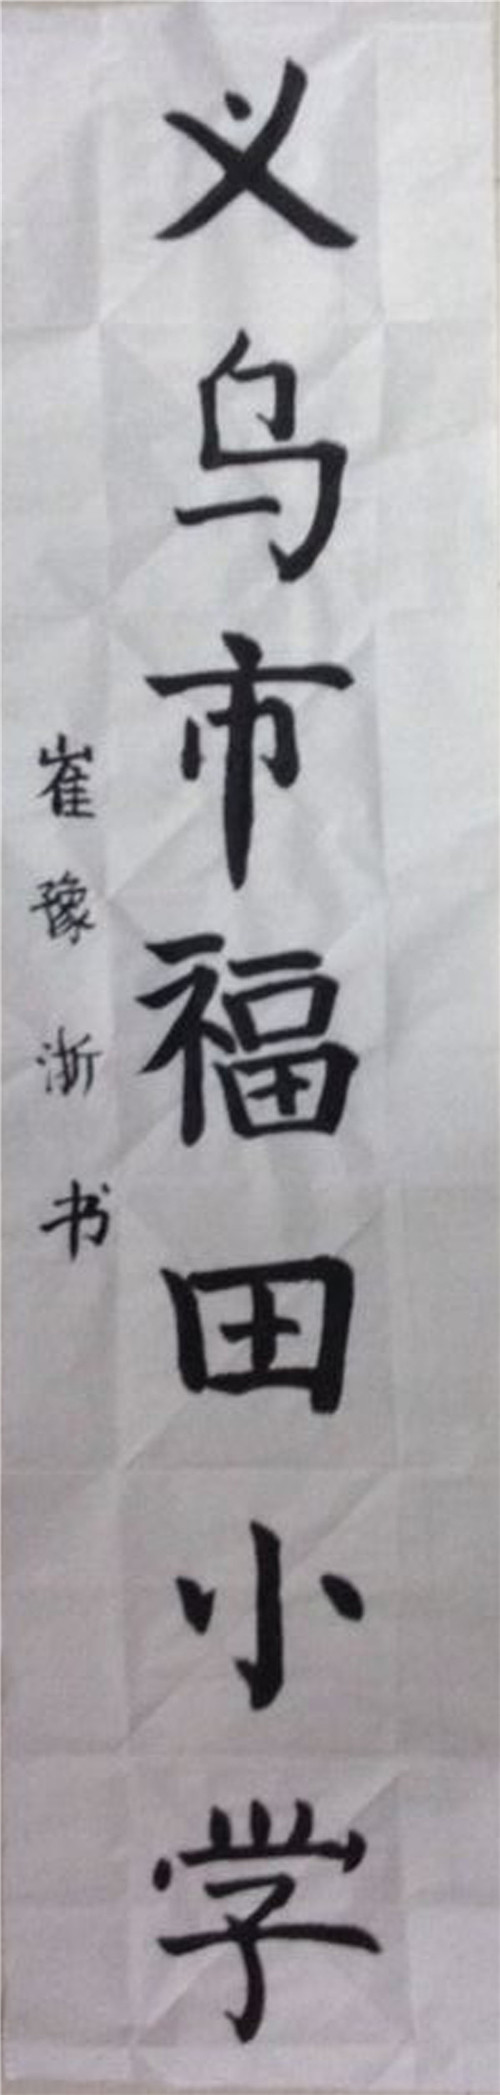 义乌市福田小学
崔豫浙书